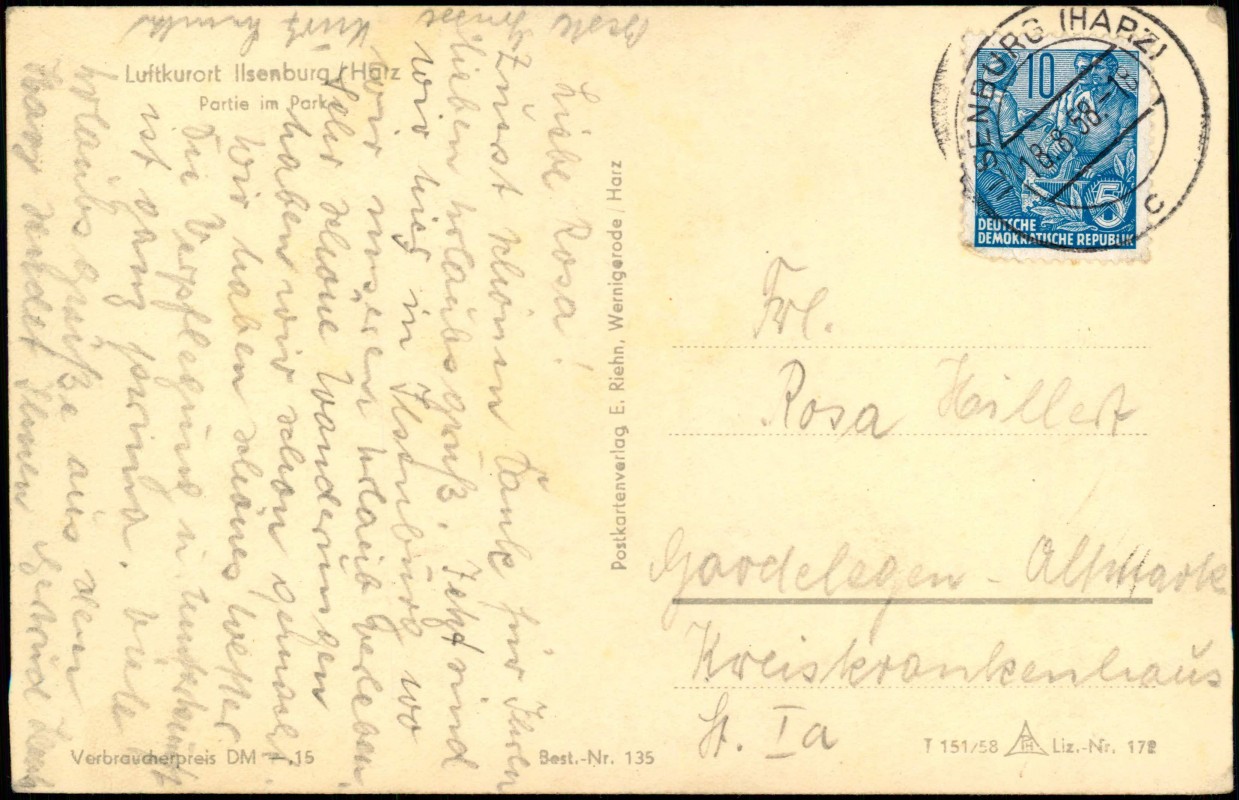 Luftkurort Ilsenburg / Harz
Partie im Park
Liebe Rosa!
Zuerst schönen Dank für Ihren
lieben Urlaubsgruß. Jetzt sind
wir hier in Ilsenburg wo
wir unseren Urlaub verleben.
Sehr schöne Wanderungen
haben wir schon gemacht.
Wir haben schönes Wetter
Die Verpflegung u Unterkunft
ist ganz prima. Viele
Urlaubsgrüße aus dem
Harz sendet Ihnen Gertrud
Verbraucherpreis DM —,15
Best.-Nr. 135
Postkartenverlag E. Riehn, Wernigerode / Harz
ILSENBURG (HARZ)
18.8.58.-18
c
10
5
DEUTSCHE
DEMOKRATISCHE REPUBLIK
Frl.
Rosa Hillert
Gardelegen - Altmark
Kreiskrankenhaus
St. Ia
T 151/58 Liz.-Nr. 172